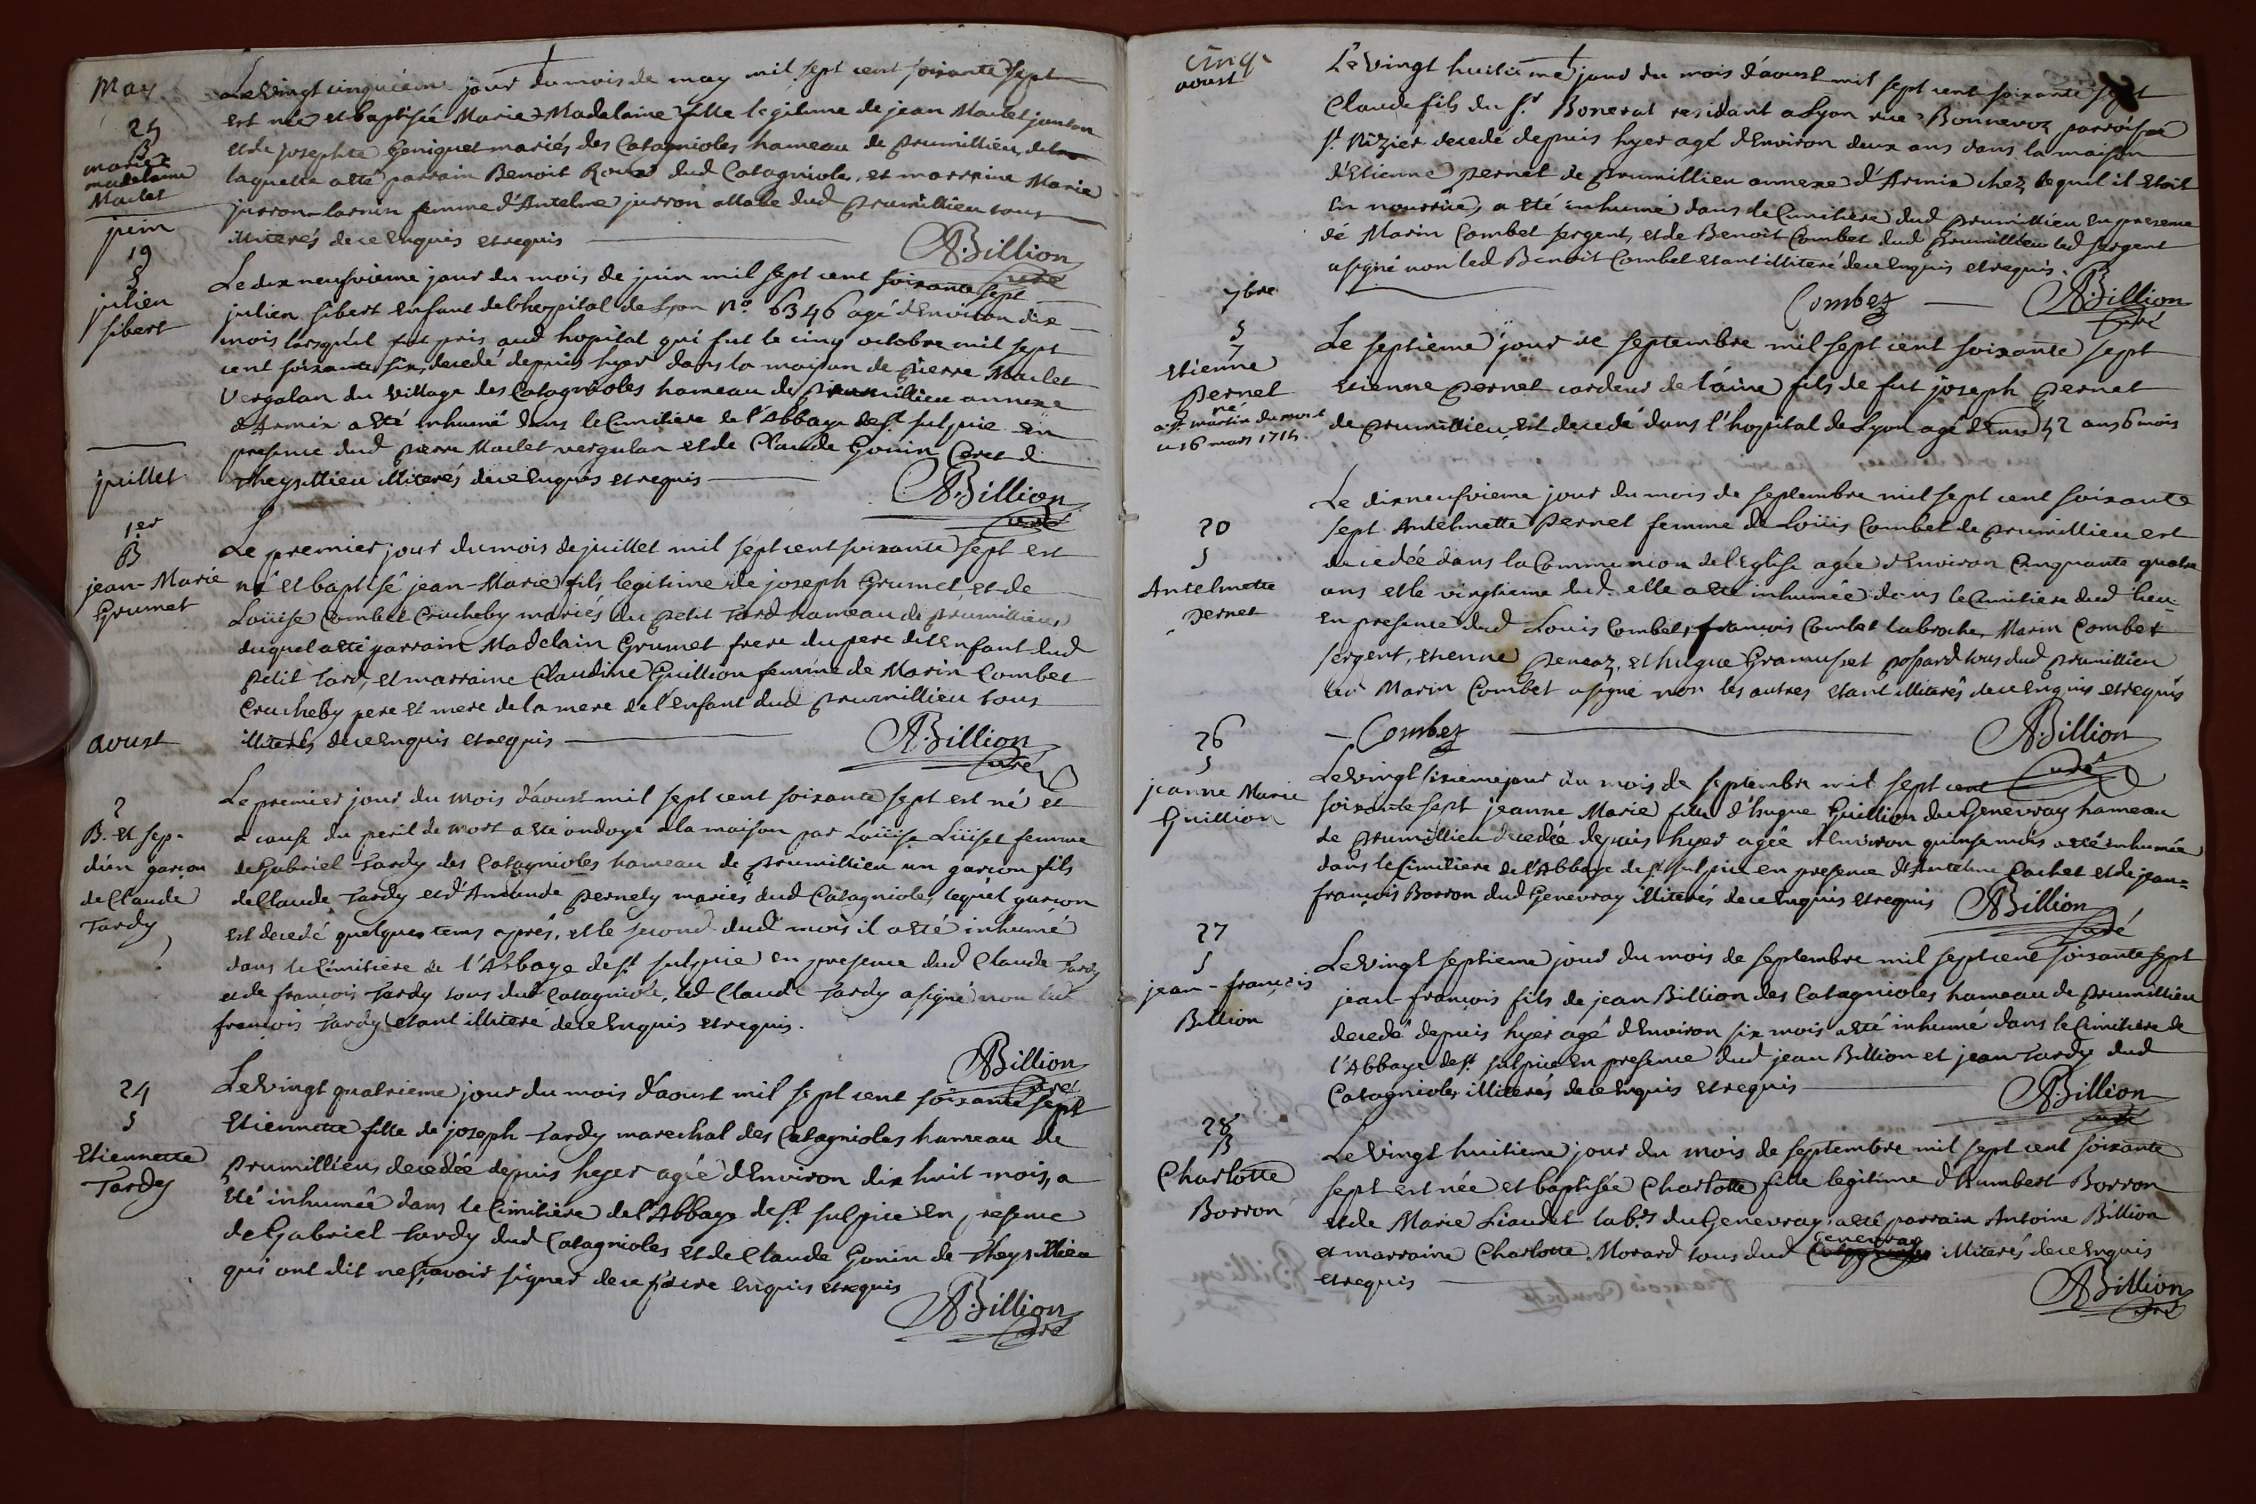 May
25
B
marie
madelaine
Maclet
Le vingt cinquieme jour du mois de may mil sept cent soixante sept
est née et baptisée Marie Madelaine fille legitime de jean Maclet janton
et de josephte Geniquet mariés des Catagnioles hameau de prumillieu, de
laquelle a eté parrain Benoit Roux dud Catagnioles, et marraine Marie
jurron femme d'Antelme jurron allabe dud prumillieu tous
illiterés de ce Enquis et requis
ABillion
curé
juin
19
S
julien
sibert
Le dix neufvieme jour du mois de juin mil sept cent soixante sept
julien sibert enfant de l'hospital de Lyon No 6346 agé d'Environ dix
mois lorsqu'il fut pris aud hopital qui fut le cinq octobre mil sept
cent soixante six, decedé depuis hyer dans la maison de pierre Maclet
Vergalan du village des Catagnioles hameau de prumillieu annexe
d'Armix a eté inhumé dans le Cimitiere de l'Abbaye de st sulpice en
presence dud pierre Maclet vergulan et de Claude Gonin Ceret de
Theysillieu illiterés de ce Enquis et requis
ABillion
curé
juillet
1er
B
jean-Marie
Grumet
Le premier jour du mois de juillet mil sept cent soixante sept est
né et baptisé jean-Marie fils legitime de joseph Grumet, et de
Loüise Combet Crucheby mariés du petit Tard hameau de prumillieu,
duquel a eté parrain Madelain Grumet frere du pere de l'Enfant dud
petit Tard, et marraine Claudine Guillion femme de Marin Combet
Crucheby pere et mere de la mere de l'enfant dud prumillieu tous
illiterés de ce enquis et requis
ABillion
curé
aoust
2
B. et sep.
d'un garçon
de Claude
Tardy
Le premier jour du mois d'aoust mil sept cent soixante sept est né et
a cause du peril de mort a eté ondoyé a la maison par Loüise Liüset femme
de Gabriel Tardy des Catagnioles hameau de prumillieu un garçon fils
de Claude Tardy et d'Amande pernety mariés dud Catagnioles, lequel garçon
est decedé quelques tems après, et le second dud mois il a eté inhumé
dans le Cimitiere de l'Abbaye de st sulpice en presence dud Claude Tardy
et de françois Tardy tous dud Catagniole, led Claude Tardy a signé non led
françois Tardy etant illiteré de ce Enquis et requis.
ABillion
curé
24
S
Etiennette
Tardy
Le vingt quatrieme jour du mois d'aoust mil sept cent soixante sept
Etiennette fille de joseph Tardy marechal des Catagnioles hameau de
prumillieu, decedée depuis hyer agée d'Environ dix huit mois, a
eté inhumée dans le Cimitiere de l'Abbaye de st sulpice en presence
de Gabriel Tardy dud Catagnioles et de Claude Gonin de Theysillieu
qui ont dit ne sçavoir signer de ce faire enquis et requis
ABillion
curé
cinq.
aoust
Le vingt huitieme jour du mois d'aoust mil sept cent soixante sept
Claude fils du sr Bonerat residant a Lyon rue Bonnevoz parroisse
st Nizier decedé depuis hyer agé d'Environ deux ans dans la maison
d'Etienne pernet de prumillieu annexe d'Armix chez lequel il etoit
en nourrice, a eté inhumé dans le Cimitiere dud prumillieu en presence
de Marin Combet sergent, et de Benoit Combet dud prumillieu led sergent
a signé non led Benoit Combet etant illiteré de ce enquis et requis.
Combez
ABillion
curé
7bre
S
7
etienne
pernet
né
a st martin du mont
le 16 mars 1715
Le septieme jour de septembre mil sept cent soixante sept
etienne pernet cardeur de laine fils de fut joseph pernet
de prumillieu, est decedé dans l'hospital de Lyon agé d'Env 52 ans 6 mois
20
S
Antelmette
pernet
Le dixneufvieme jour du mois de septembre mil sept cent soixante
sept Antelmette pernet femme de Loüis Combet de prumillieu est
decedée dans la Communion de l'Eglise agée d'Environ Cinquante quatre
ans et le vingtieme dud elle a eté inhumée dans le Cimitiere dud lieu
en presence dud Louis Combet, françois Combet labroche, Marin Combet
sergent, etienne pencaz, et hugue Gramusset possard tous dud prumillieu
led Marin Combet a signé non les autres etant illiterés de ce enquis et requis
Combez
ABillion
curé
26
S
jeanne Marie
Guillion
Le vingt sixieme jour du mois de septembre mil sept cent
soixante sept jeanne Marie fille d'hugue Guillion du Genevray hameau
de prumillieu decedée depuis hyer agée d'Environ quinse mois a eté inhumée
dans le Cimitiere de l'Abbaye de st sulpice en presence d'Antelme Cachet et de jean-
françois Borron dud Genevray illiterés de ce enquis et requis
ABillion
curé
27
S
jean-françois
Billion
Le vingt septieme jour du mois de septembre mil sept cent soixante sept
jean-françois fils de jean Billion des Catagnioles hameau de prumillieu
decedé depuis hyer agé d'Environ six mois a eté inhumé dans le Cimitiere de
l'Abbaye de st sulpice en presence dud jean Billion et jean Tardy dud
Catagnioles illiterés de ce enquis et requis
ABillion
curé
28
B
Charlotte
Borron
Le vingt huitieme jour du mois de septembre mil sept cent soixante
sept est née et baptisée Charlotte fille legitime d'humbert Borron
et de Marie Liaudet lab.rs du Genevray a eté parrain Antoine Billion
et marraine Charlotte Morard tous dud Genevray illiterés de ce enquis
et requis
ABillion
curé